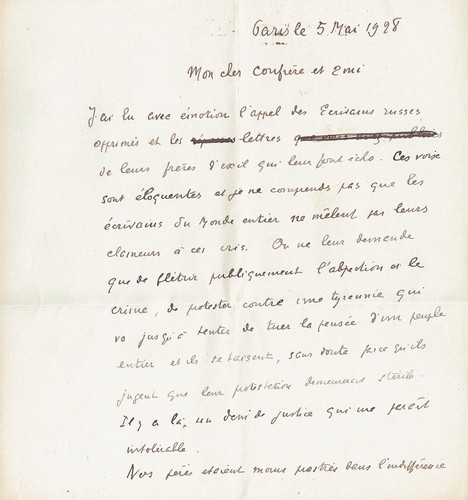 Paris le 5 Mai 1928
Mon cher Confrère et ami
J'ai lu avec émotion l'appel des Ecrivains russes
opprimés et les réponses lettres
de leurs frères d'exil qui leur font écho. Ces voix
sont éloquentes et je ne comprends pas que les
écrivains du Monde entier ne mêlent pas leurs
clameurs à ces cris. On ne leur demande
que de flétrir publiquement l'abjection et le
crime, de protester contre une tyrannie qui
va jusqu'à tenter de tuer la pensée d'un peuple
entier et ils se taisent, sans doute parce qu'ils
jugent que leur protestation demeurera stérile.
Il y a là, un deni de justice qui me paraît
intolérable.
Nos pères étaient moins prostrés dans l'indifférence